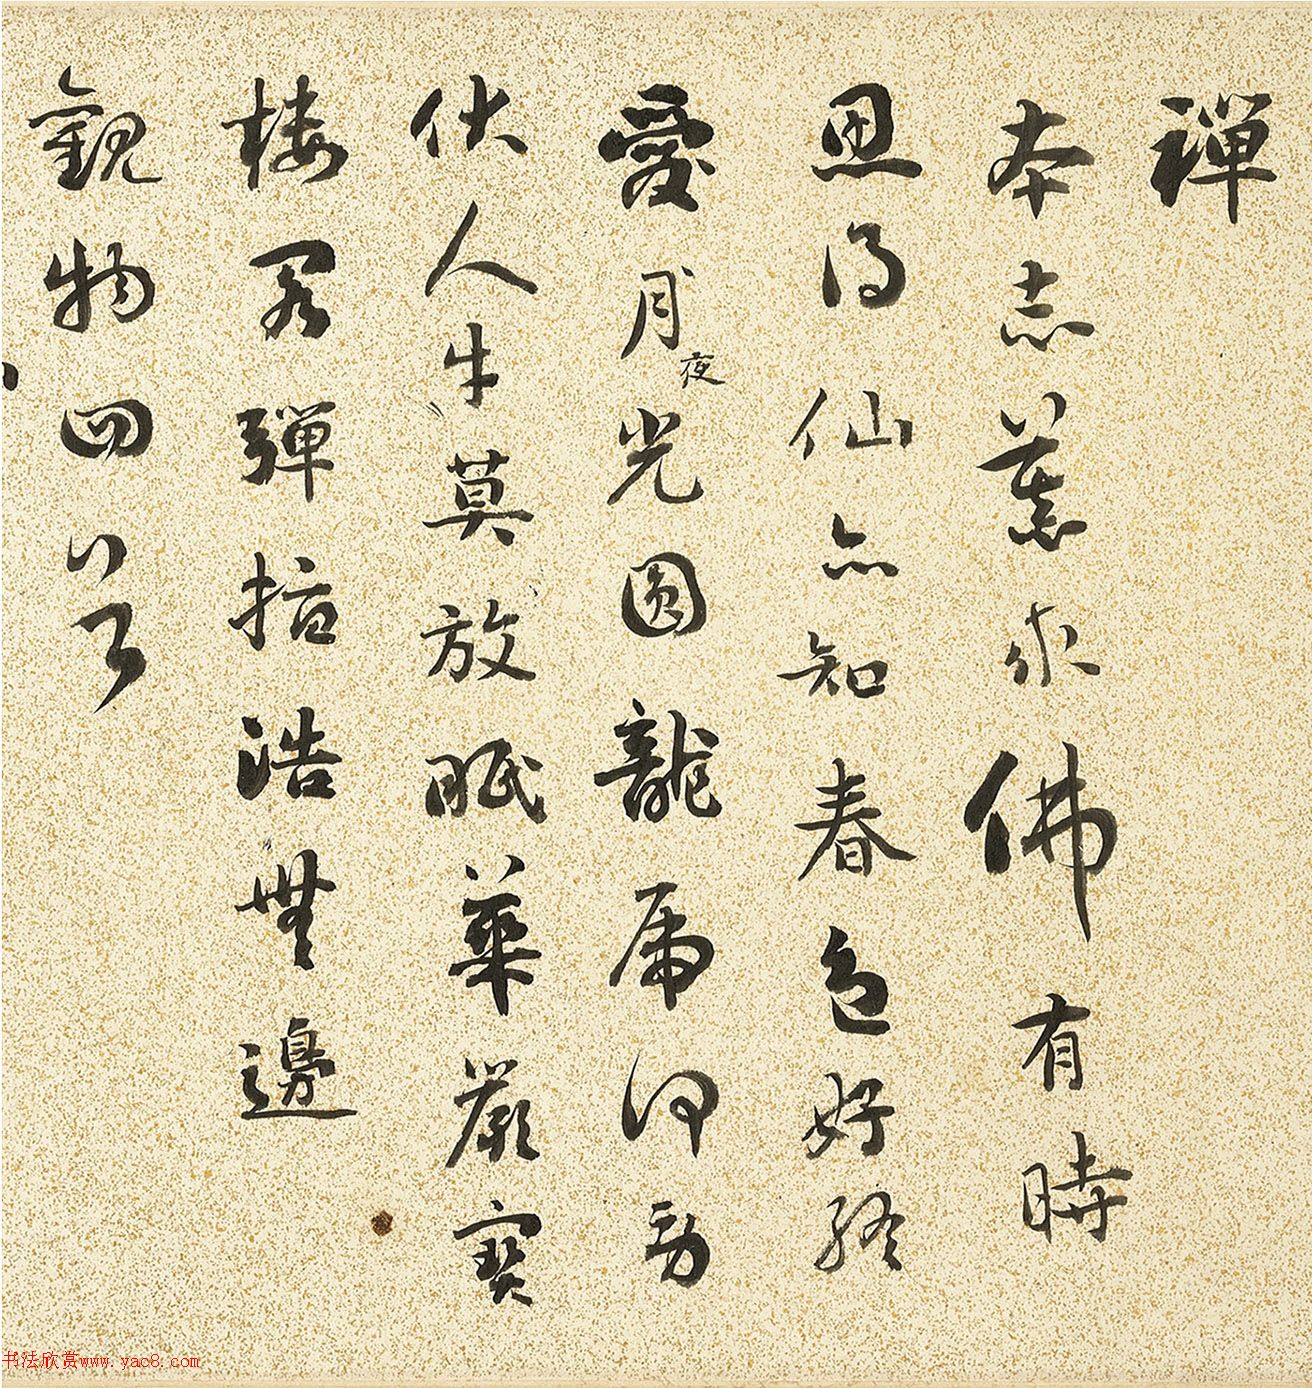 禪
本志求佛有時
思得仙亦知春色好終
愛月夜光圓龍虎何動
伏人牛莫放眠華嚴寶
樓閣彈指浩無邊
觀物四首
书法欣赏www.yac8.com